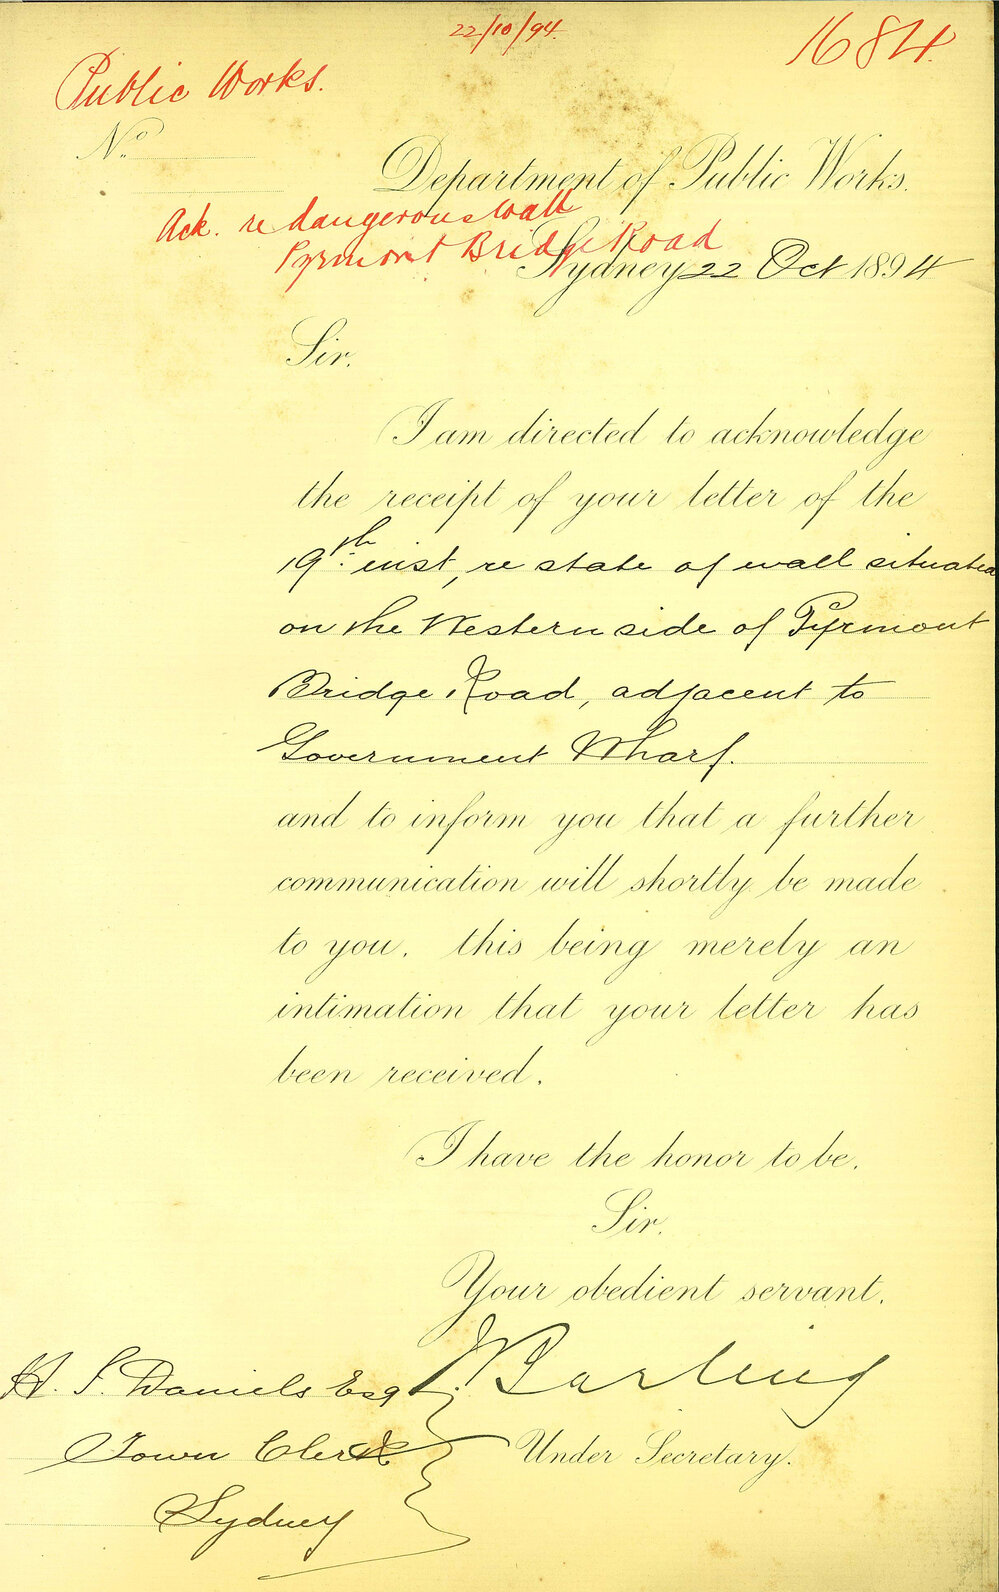 22/10/94.
1684.
Public Works.
No.
Department of Public Works.
Ack. re dangerous wall
Pyrmont Bridge Road
Sydney 22 Oct 1894
Sir.
I am directed to acknowledge
the receipt of your letter of the
19th inst, re state of wall situated
on the Western side of Pyrmont
Bridge Road, adjacent to
Government Wharf.
and to inform you that a further
communication will shortly be made
to you, this being merely an
intimation that your letter has
been received.
I have the honor to be.
Sir.
Your obedient servant.
J Barling
H. S. Daniels Esq
Town Clerk
Under Secretary.
Sydney